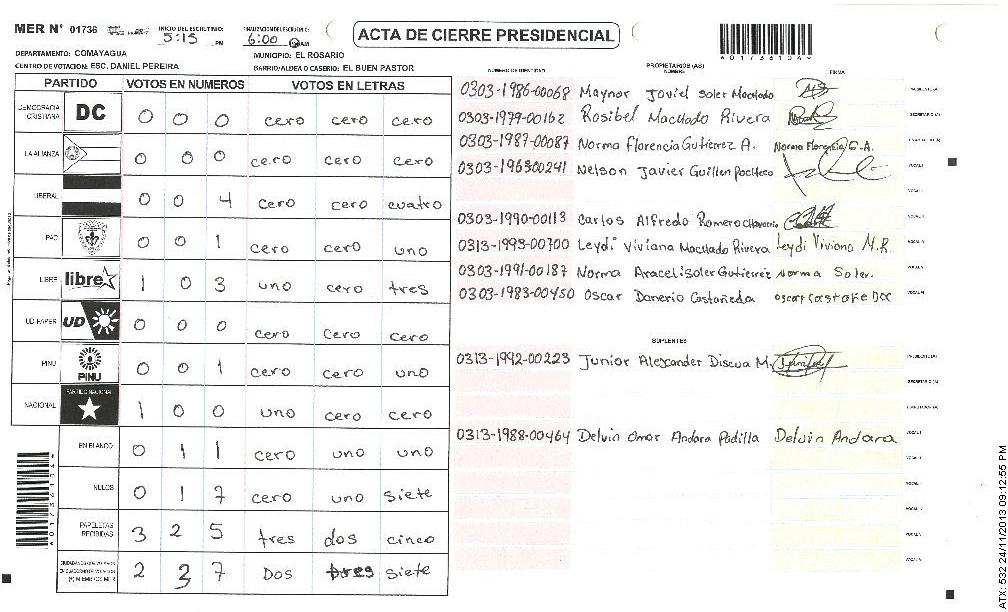 MER N° 01736 INICIO DEL ESCRUTINIO: 5:15 PM FINALIZACION DEL ESCRUTINIO: 6:00 AM
ACTA DE CIERRE PRESIDENCIAL
DEPARTAMENTO: COMAYAGUA MUNICIPIO: EL ROSARIO
CENTRO DE VOTACION: ESC. DANIEL PEREIRA BARRIO/ALDEA O CASERIO: EL BUEN PASTOR
PARTIDO VOTOS EN NUMEROS VOTOS EN LETRAS
DEMOCRACIA CRISTIANA DC 0 0 0 cero cero cero
LA ALIANZA 0 0 0 cero cero cero
LIBERAL 0 0 4 cero cero cuatro
PAC 0 0 1 cero cero uno
LIBRE libre 1 0 3 uno cero tres
UD-FAPER UD 0 0 0 cero cero cero
PINU PINU 0 0 1 cero cero uno
NACIONAL PARTIDO NACIONAL 1 0 0 uno cero cero
EN BLANCO 0 1 1 cero uno uno
NULOS 0 1 7 cero uno siete
PAPELETAS RECIBIDAS 3 2 5 tres dos cinco
2 3 7 Dos tres siete
NUMERO DE IDENTIDAD PROPIETARIOS (AS) NOMBRE FIRMA
0303-1986-00068 Maynor Joviel Soler Machado PRESIDENTE (A)
0303-1979-00162 Rosibel Machado Rivera SECRETARIO (A)
0303-1987-00087 Norma Florencia Gutierrez A. Norma Florencia G.A.
0303-196300241 Nelson Javier Guillen Pacheco VOCAL I
0303-1990-00113 Carlos Alfredo Romero
0313-1993-00700 Leydi Viviana Machado Rivera Leydi Viviana M.R.
0303-1991-00187 Norma Araceli Soler Gutierrez Norma Soler.
0303-1983-00450 Oscar Danerio Castañeda
SUPLENTES
0313-1992-00223 Junior Alexander Discua M. PRESIDENTE (A)
SECRETARIO (A)
0313-1988-00464 Delvin Omar Andara Padilla Delvin Andara
ATX: 532 24/11/2013 09:12:55 PM